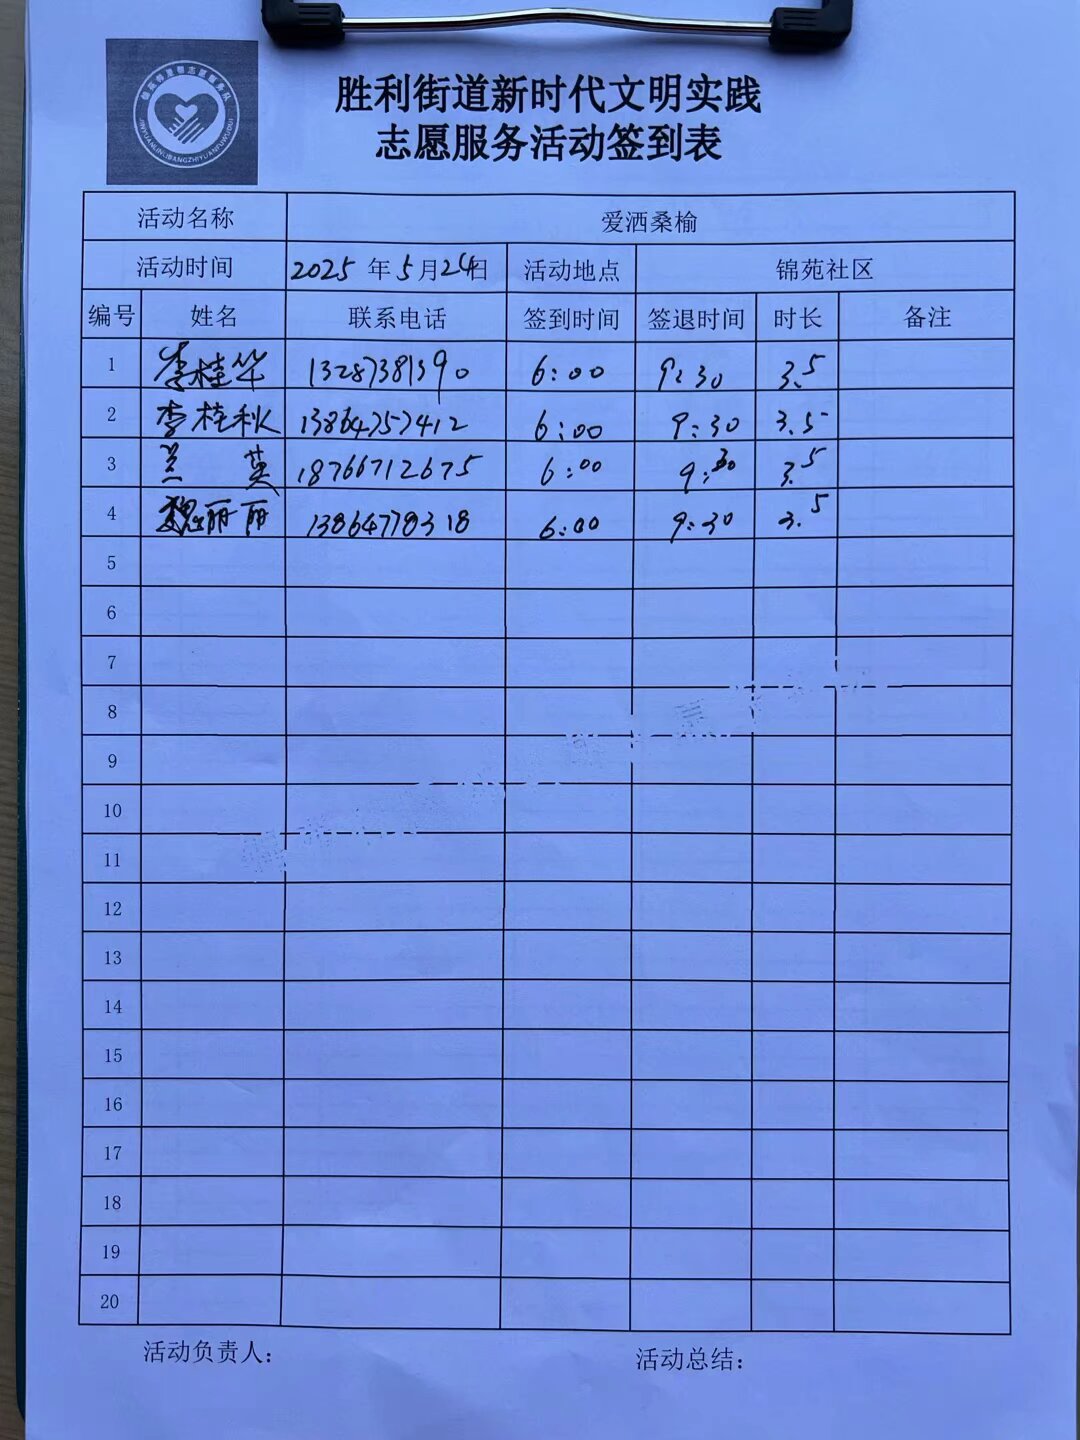 胜利街道新时代文明实践
志愿服务活动签到表
活动名称 爱洒桑榆
活动时间 2025 年 5 月 24 日 活动地点 锦苑社区
编号 姓名 联系电话 签到时间 签退时间 时长 备注
1 李桂华 13287381390 6:00 9:30 3.5
2 李桂秋 13864757412 6:00 9:30 3.5
3 兰英 18766712675 6:00 9:30 3.5
4 魏丽丽 13864778318 6:00 9:30 3.5
5
6
7
8
9
10
11
12
13
14
15
16
17
18
19
20
活动负责人: 活动总结: